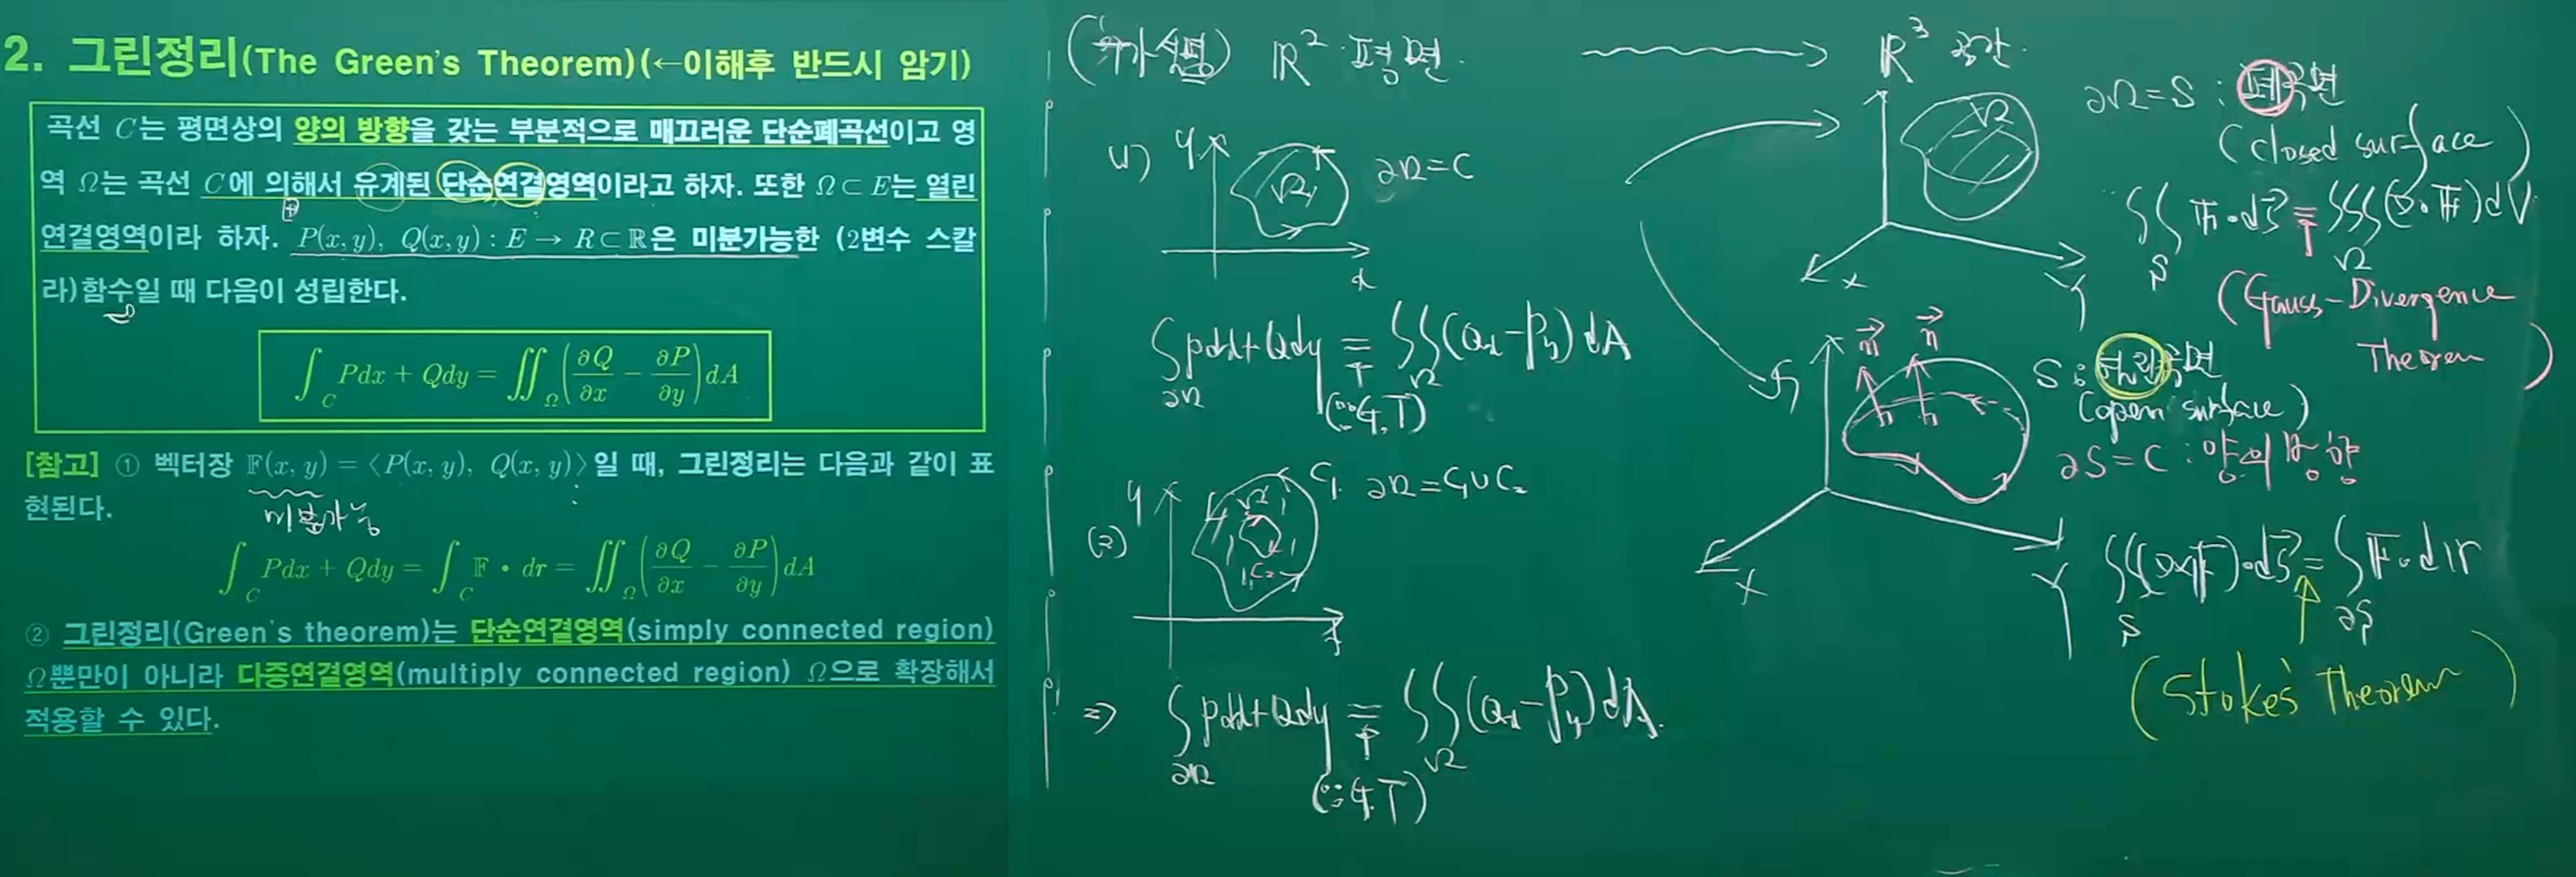 2. 그린정리(The Green's Theorem)(←이해후 반드시 암기)
곡선 C는 평면상의 양의 방향을 갖는 부분적으로 매끄러운 단순폐곡선이고 영
역 Ω는 곡선 C에 의해서 유계된 단순연결영역이라고 하자. 또한 Ω⊂E는 열린
연결영역이라 하자. P(x, y), Q(x, y) : E → R⊂ℝ은 미분가능한 (2변수 스칼
라)함수일 때 다음이 성립한다.
∫_C Pdx + Qdy = ∬_Ω (∂Q/∂x − ∂P/∂y) dA
[참고] ① 벡터장 𝔽(x, y) = ⟨P(x, y), Q(x, y)⟩일 때, 그린정리는 다음과 같이 표
현된다.
미분가능
∫_C Pdx + Qdy = ∫_C 𝔽 • dr = ∬_Ω (∂Q/∂x − ∂P/∂y) dA
② 그린정리(Green's theorem)는 단순연결영역(simply connected region)
Ω뿐만이 아니라 다중연결영역(multiply connected region) Ω으로 확장해서
적용할 수 있다.
(추가설명) ℝ² 평면
(1) y Ω ∂Ω=C
x
∫_∂Ω Pdx+Qdy = ∬_Ω (Qx−Py) dA
(∵G.T)
(2) y Ω C₁ ∂Ω=C₁∪C₂
C₂
x
⇒ ∫_∂Ω Pdx+Qdy = ∬_Ω (Qx−Py) dA.
(∵G.T)
ℝ³ 공간
Ω ∂Ω=S : 폐곡면
(closed surface)
∬_S 𝔽•dS = ∭_Ω (∇•𝔽) dV
x y
(Gauss-Divergence
Theorem)
n n S : 열린곡면
(open surface)
∂S=C : 양의 방향
x y
∬_S (∇×𝔽)•dS = ∫_∂S 𝔽•dr
(Stoke's Theorem)